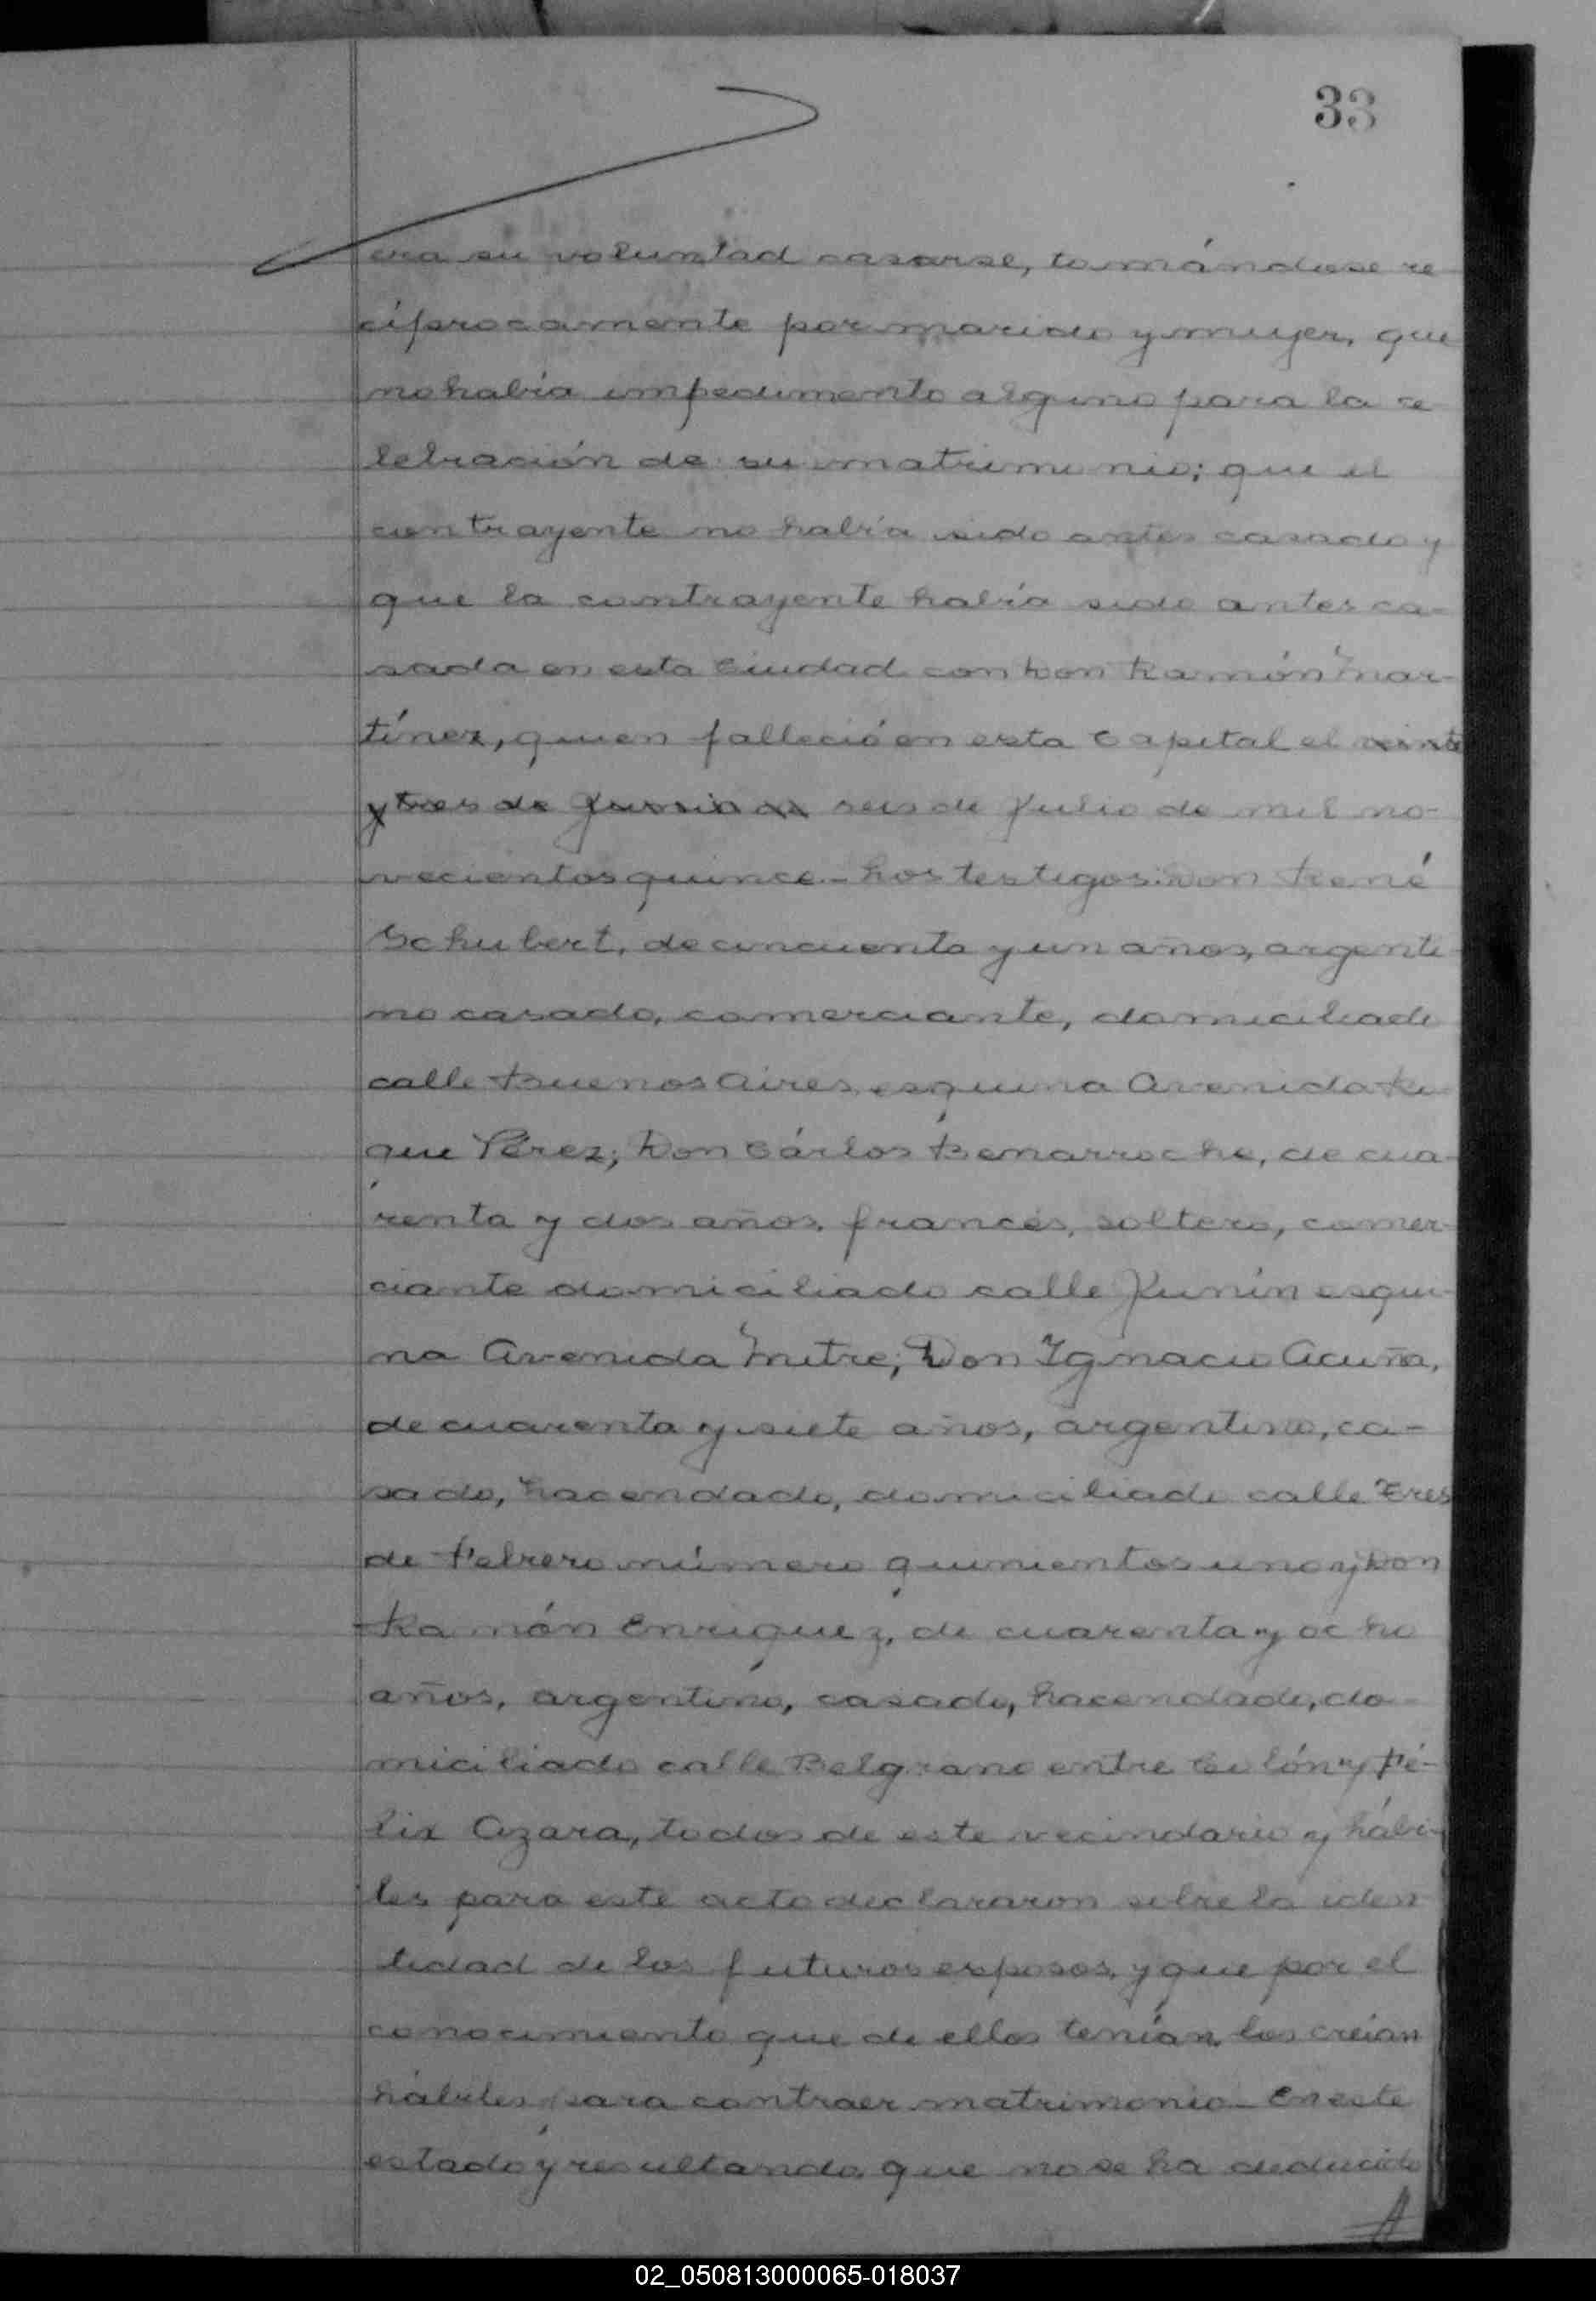 33
era su voluntad casarse, tomándose re
cíprocamente por marido y mujer, que
no había impedimento alguno para la ce
lebración de su matrimonio; que el
contrayente no había sido antes casado y
que la contrayente había sido antes ca-
sada en esta Ciudad con Don Ramón Mar-
tínez, quien falleció en esta Capital el veinte
y tres de Junio de seis de Julio de mil no-
vecientos quince.- Los testigos: Don René
Schubert, de cincuenta y un años, argenti
no casado, comerciante, domiciliado
calle Buenos Aires esquina Avenida Ro
que Pérez; Don Cárlos Benarroche, de cua-
renta y dos años, francés, soltero, comer-
ciante domiciliado calle Junín esqui-
na Avenida Mitre; Don Ignacio Acuña,
de cuarenta y siete años, argentino, ca-
sado, hacendado, domiciliado calle Tres
de Febrero número quinientos uno y Don
Ramón Enriquez, de cuarenta y ocho
años, argentino, casado, hacendado, do-
miciliado calle Belgrano entre Colón y Fé-
lix Azara, todos de este vecindario y hábi-
les para este acto declararon sobre la iden
tidad de los futuros esposos, y que por el
conocimiento que de ellos tenían, los creían
hábiles para contraer matrimonio.- En este
estado y resultando que no se ha deducido
02_050813000065-018037